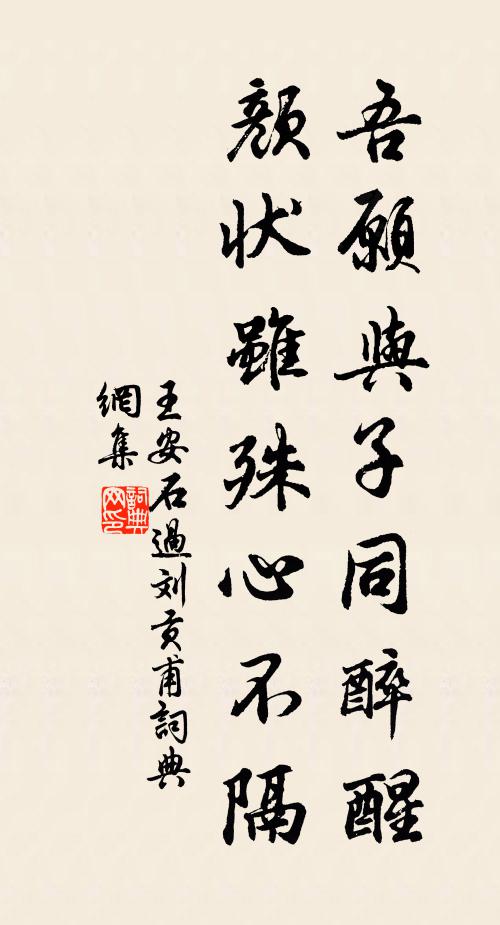 吾願與子同醉醒
顏狀雖殊心不隔
王安石過刘貢甫詞典
網集
詞典网印